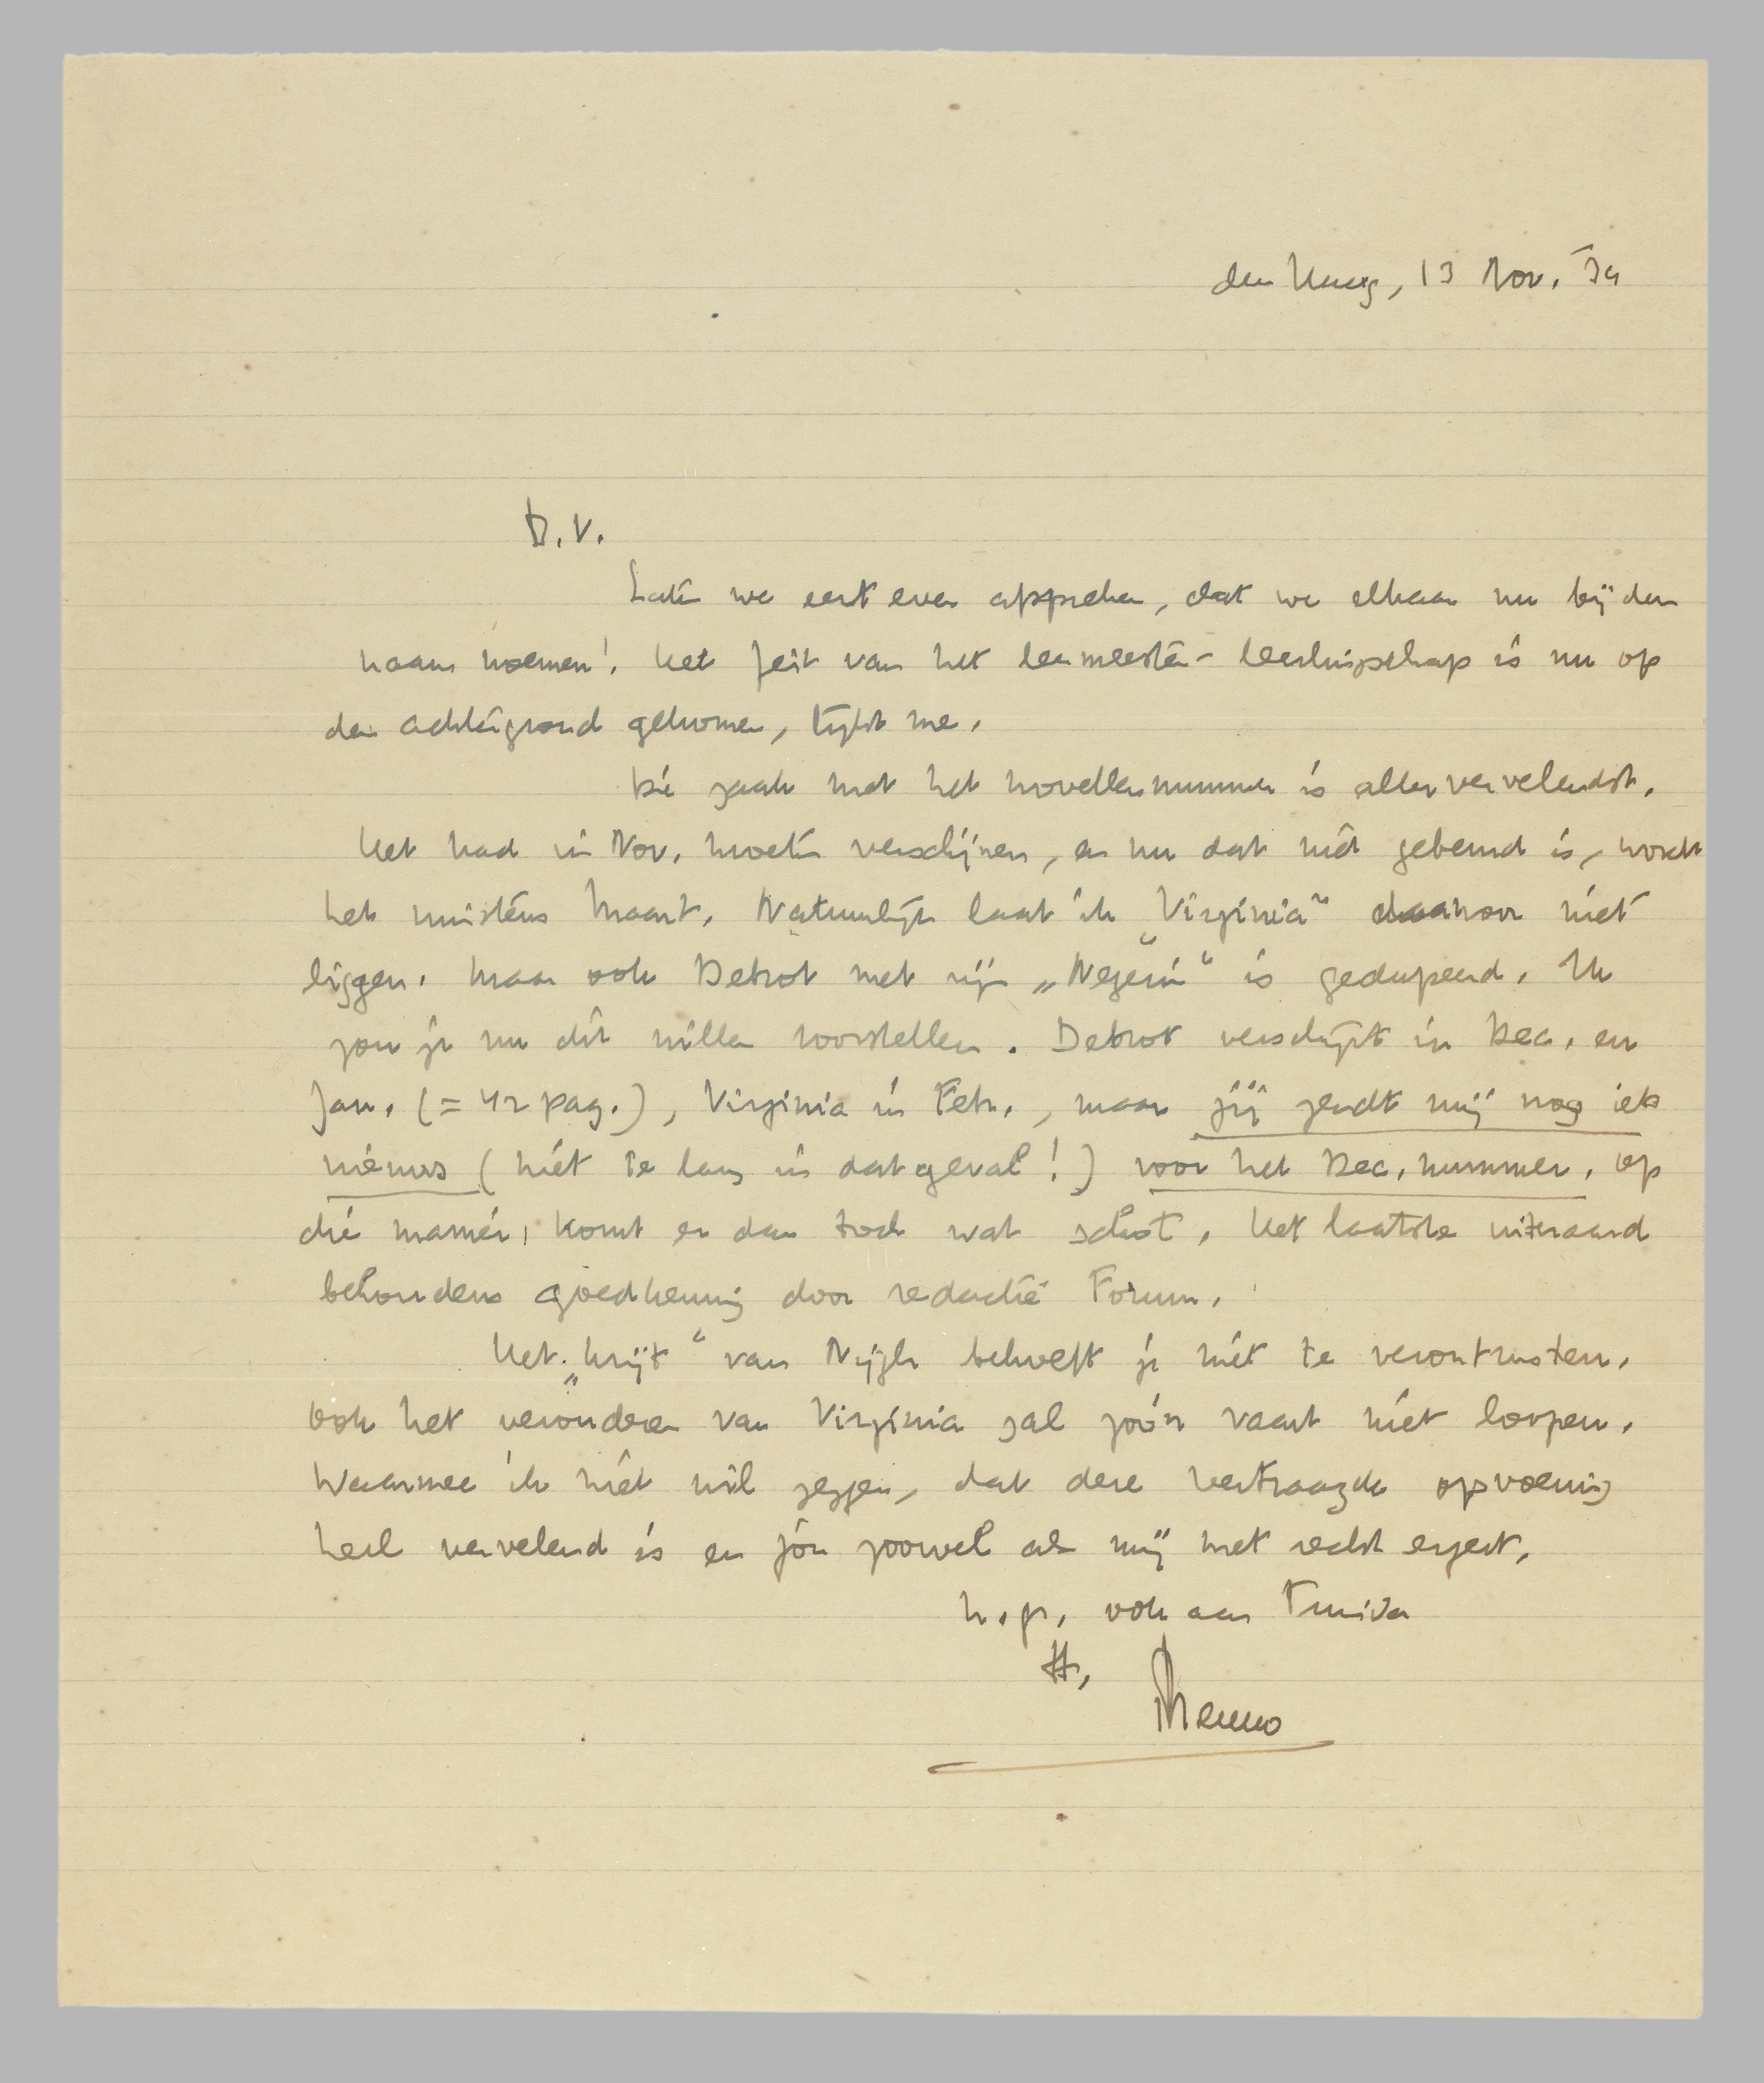 den Haag, 13 Nov. '34
D.V.
Laten we eerst even afspreken, dat we elkaar nu bij den
naam noemen! Het feit van het leermeester-leerlingschap is nu op
den achtergrond gekomen, lijkt me.
Die zaak met het novellennummer is allervervelendst.
Het had in Nov. moeten verschijnen, en nu dat niet gebeurd is, wordt
het minstens Maart. Natuurlijk laat ik „Virginia" daarvoor niet
liggen. Maar ook Debrot met zijn „Negerin" is gedupeerd. Ik
zou je nu dit willen voorstellen. Debrot verschijnt in Dec. en
Jan. (= 42 pag.), Virginia in Febr., maar jij zendt mij nog iets
nieuws (niet te lang in dat geval!) voor het Dec. nummer. Op
die manier komt er dan toch wat schot. Het laatste uiteraard
behoudens goedkeuring door redactie Forum.
Het „krijt" van Nijgh behoeft je niet te verontrusten.
Ook het verouderen van Virginia zal zoo'n vaart niet loopen.
Waarmee ik niet wil zeggen, dat deze vertraagde opvoering
heel vervelend is en jou zoowel als mij met recht ergert.
h.gr. ook aan
tt.
Menno